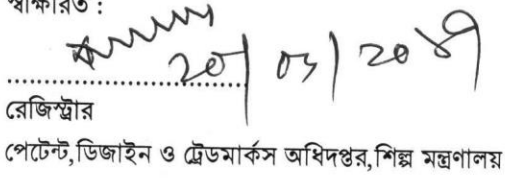 স্বাক্ষরিত :
রেজিস্ট্রার
পেটেন্ট,ডিজাইন ও ট্রেডমার্কস অধিদপ্তর,শিল্প মন্ত্রণালয়